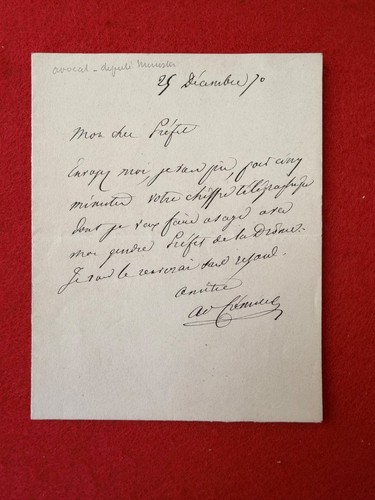 avocat - député Ministre
25 Décembre 70
Mon cher Préfet
Envoyez moi, je vous prie, pour cinq
minutes votre chiffre télégraphique
dont je veux faire usage avec
mon gendre Préfet de la Drôme.
Je vous le renverrai sans retard.
amitié
ad Crémieux